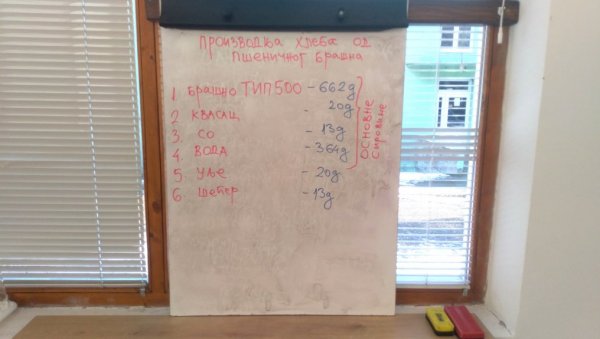 ПРОИЗВОДЊА ХЛЕБА ОД
ПШЕНИЧНОГ БРАШНА
1. БРАШНО ТИП 500 - 662g
2. КВАСАЦ - 20g
3. СО - 13g
4. ВОДА - 364g
5. УЉЕ - 20g
6. ШЕЋЕР - 13g
ОСНОВНЕ
СИРОВИНЕ